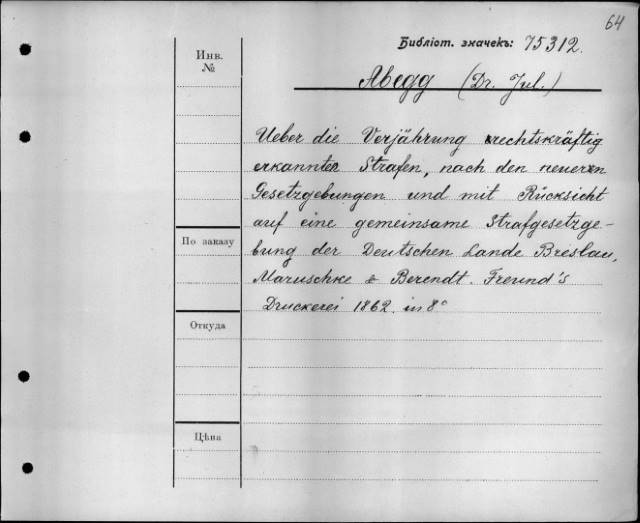 64
Библіот. значекъ: 75312.
Инв.
№
Abegg (Dr. Jul.)
Ueber die Verjährung rechtskräftig
erkannter Strafen, nach den neueren
Gesetzgebungen und mit Rücksicht
auf eine gemeinsame Strafgesetzge-
bung der Deutschen Lande Breslau,
Maruschke & Berendt. Freund's
Druckerei 1862. in 8°
По заказу
Откуда
Цѣна